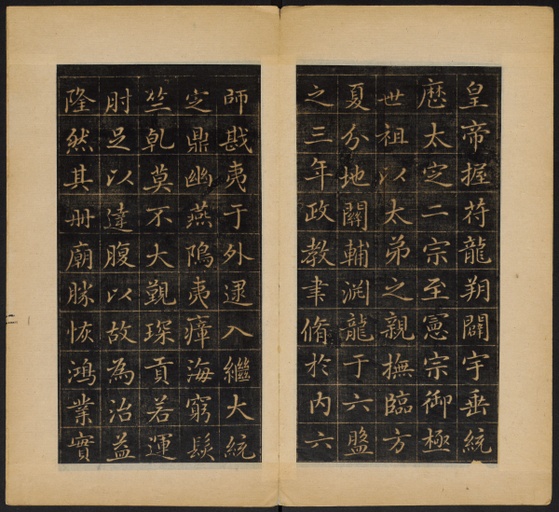 皇帝握符龍朔闢宇垂統
歷太定二宗至憲宗御極
世祖以太弟之親撫臨方
夏分地關輔渊龍于六盤
之三年政教聿脩於内六
師戡夷于外逮入繼大統
定鼎幽燕隝夷瘴海窮髮
竺乹莫不大觐琛貢若運
肘足以達腹以故為治益
隆然其册廟勝恢鴻業實